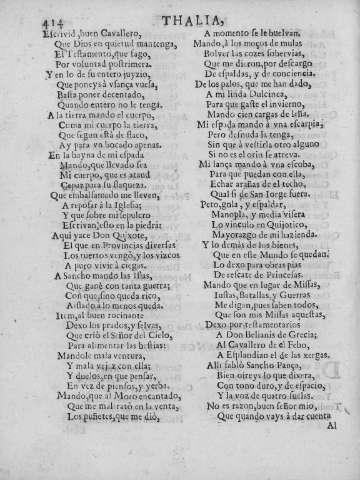 414 THALIA,
Escrivid, buen Cavallero,
Que Dios en quietud mantenga,
El Testamento, que fago,
Por voluntad postrimera.
Y en lo de su entero juyzio,
Que poneys à vsança vuesa,
Basta poner decentado,
Quando entero no le tenga.
A la tierra mando el cuerpo,
Coma mi cuerpo la tierra,
Que segun està de flaco,
Ay para vn bocado apenas.
En la bayna de mi espada
Mando, que llevado sea
Mi cuerpo, que es ataud
Capaz para su flaqueza.
Que embalsamado me lleven,
A reposar à la Iglesia;
Y que sobre mi sepulcro
Escrivan, esto en la piedra:
Aqui yace Don Quixote,
El que en Provincias diversas
Los tuertos vengò, y los vizcos
A puro vivir à ciegas.
A Sancho mando las Islas,
Que ganè con tanta guerra;
Con que, sino queda rico,
Aislado, à lo menos queda.
Item, al buen rocinante
Dexo los prados, y selvas,
Que criò el Señor del Cielo,
Para alimentar las bestias:
Mandole mala ventura,
Y mala vejez con ella;
Y duelos, en que pensar,
En vez de piensos, y yerba.
Mando, que al Moro encantado,
Que me maltratò en la venta,
Los puñetes, que me diò,
A momento se le buelvan.
Mando, à los moços de mulas
Bolver las cozes sobervias,
Que me dieron, por descargo
De espaldas, y de conciencia.
De los palos, que me han dado,
A mi linda Dulcinea,
Para que gaste el invierno,
Mando cien cargas de leña.
Mi espada mando à vna escarpia;
Pero desnuda la tenga,
Sin que à vestirla otro alguno
Si no es el orin se atreva.
Mi lança mando à vna escoba,
Para que puedan con ella,
Echar arañas del techo,
Qual si de San Iorge fuera.
Peto, gola, y espaldar,
Manopla, y media visera
Lo vinculo en Quijotico,
Mayorazgo de mi hazienda.
Y lo demàs de los bienes,
Que en este Mundo se quedan,
Lo dexo para obras pias
De rescate de Princesas.
Mando que en lugar de Missas,
Iustas, Batallas, y Guerras
Me digan, pues saben todos,
Que son mis Missas aquestas,
Dexo por testamentarios
A Don Belianis de Grecia;
Al Cavallero de el Febo,
A Esplandian el de las xergas.
Alli fablò Sancho Pança,
Bien oireys lo que dixera,
Con tono duro, y de espacio,
Y la voz de quatro suelas.
No es razon, buen señor mio,
Que quando vays à dar cuenta
Al